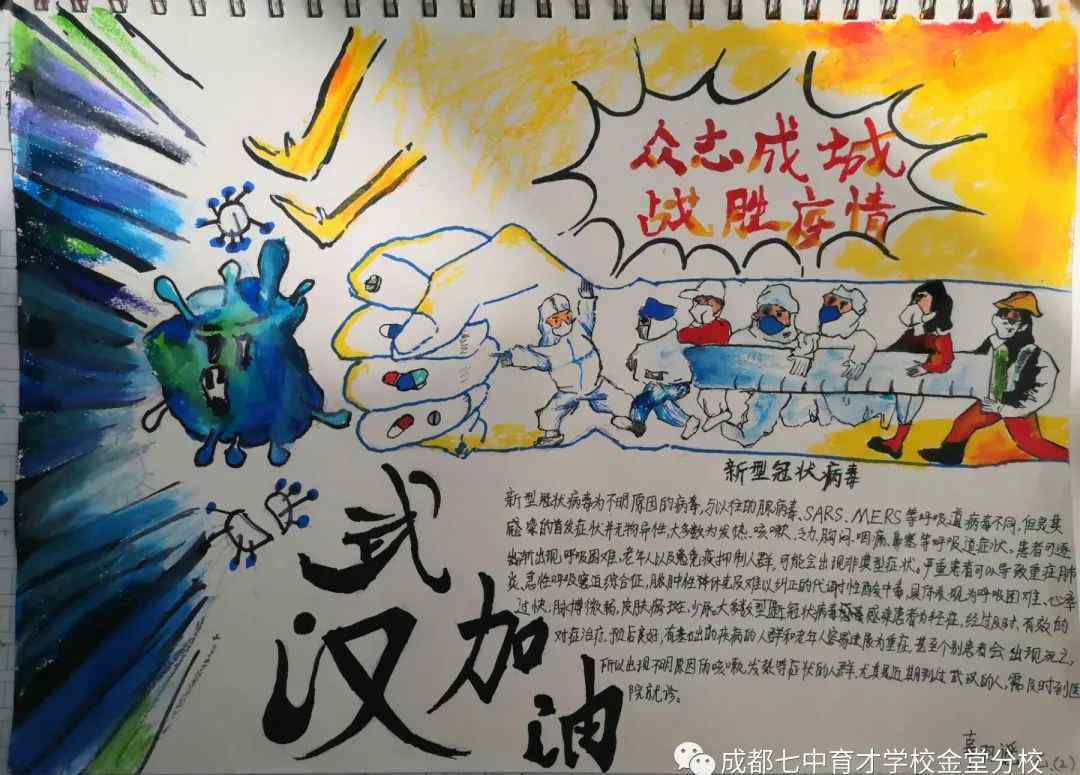 众志成城
战胜疫情
新型冠状病毒
新型冠状病毒为不明原因的病毒,与以往的腺病毒、SARS、MERS等呼吸道病毒不同,但是其
感染的首发症状并无特异性,大多数为发热、咳嗽、乏力、胸闷、咽痛、鼻塞等呼吸道症状。患者可逐
渐出现呼吸困难,老年人以及患免疫抑制人群,可能会出现非典型症状。严重患者可以导致重症肺
炎、急性呼吸窘迫综合征,脓肿性休克及难以纠正的代谢性酸中毒,具体表现为呼吸困难、心率
过快,脉搏微弱,皮肤瘀斑,少尿。大多数型新冠状病毒感染患者为轻症,经过及时、有效的
对症治疗,预后良好,有基础疾病的人群和老年人容易进展为重症,甚至个别患者会出现死亡,
所以出现不明原因伤咳嗽、发热等症状的人群,尤其是近期到过武汉的人,需及时到医
院就诊。
武
汉
加
油
(2)
成都七中育才学校金堂分校